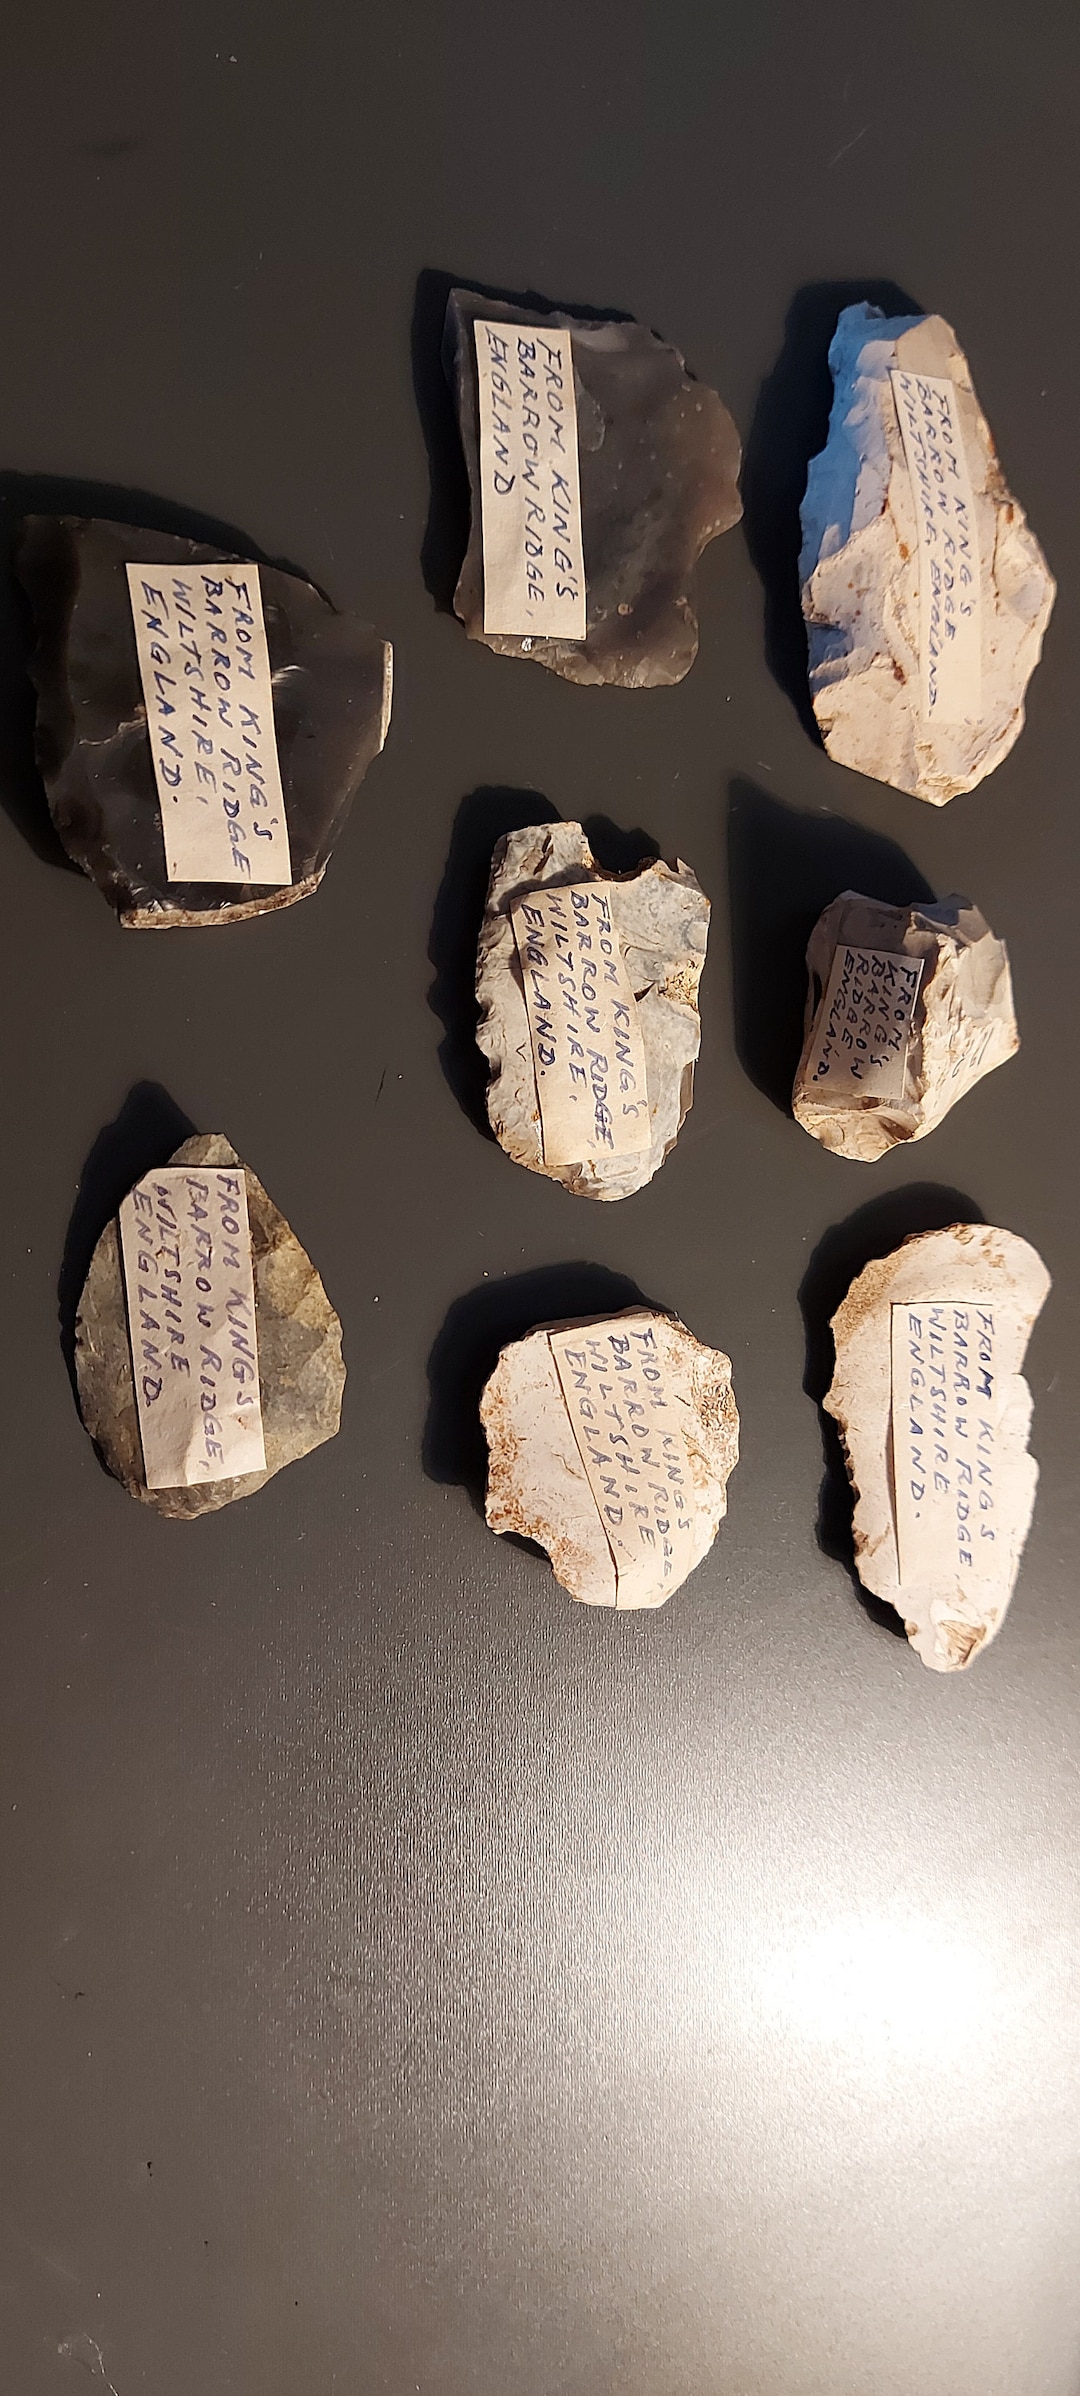 FROM KING'S
BARROW RIDGE,
ENGLAND
FROM KING'S
BARROW RIDGE
WILTSHIRE ENGLAND.
FROM KING'S
BARROW RIDGE
WILTSHIRE,
ENGLAND.
FROM KING'S
BARROW RIDGE,
WILTSHIRE.
ENGLAND.
FROM
KING'S
BARROW
RIDGE
ENGLAND.
FROM KING'S
BARROW RIDGE,
WILTSHIRE
ENGLAND
FROM KING'S
BARROW RIDGE,
WILTSHIRE
ENGLAND.
FROM KING'S
BARROW RIDGE,
WILTSHIRE.
ENGLAND.